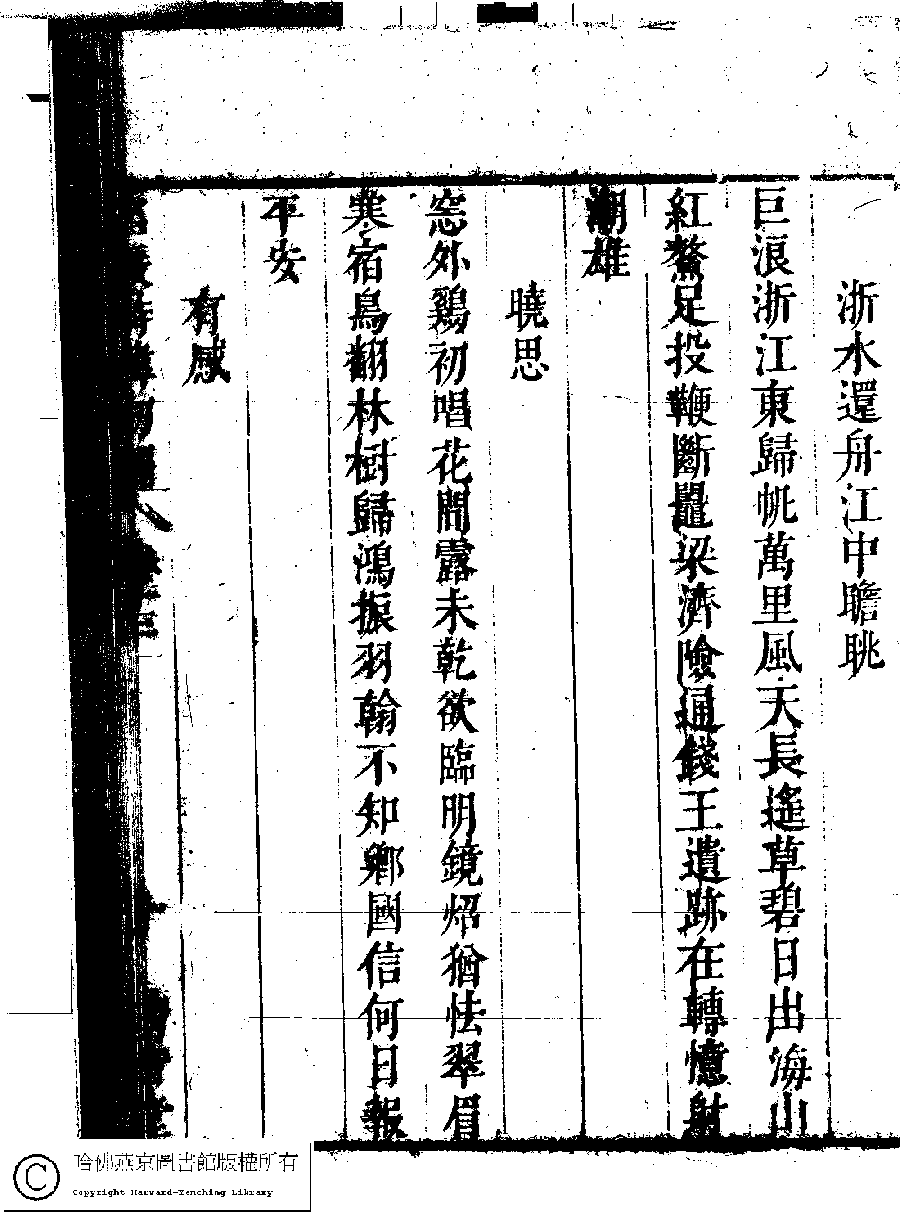 浙水還舟江中瞻眺
巨浪浙江東歸帆萬里風天長遙草碧日出海山
紅鰲足投鞭斷鼉梁濟險通錢王遺跡在轉憶射
潮雄
曉思
窓外鷄初唱花間露未乾欲臨明鏡炤猶怯翠眉
寒宿鳥翻林樹歸鴻振羽翰不知鄉國信何日報
平安
有感
哈佛燕京圖書館版權所有
Copyright Harvard-Yenching Library